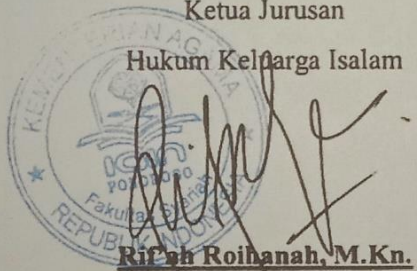 Ketua Jurusan
Hukum Keluarga Isalam
KEMENTERIAN AGAMA
IAIN
PONOROGO
Fakultas Syariah
REPUBLIK INDONESIA
Rif'ah Roihanah, M.Kn.